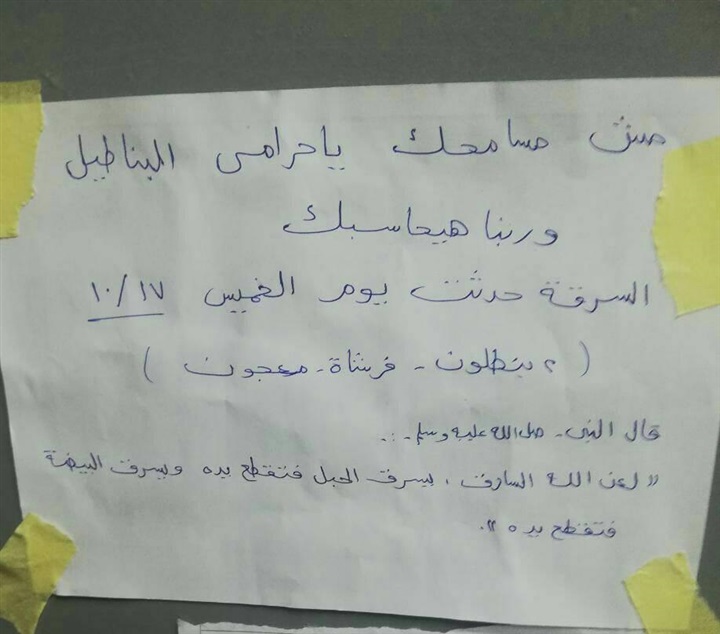 مش مسامحك ياحرامى البناطيل
وربنا هيحاسبك
السرقة حدثت يوم الخميس ١٠/١٧
( ٢ بنطلون - فرشاة - معجون )
قال النبى - صلى الله عليه وسلم - :
" لعن الله السارق ، يسرق الحبل فتقطع يده ويسرق البيضة
فتقطع يده ".